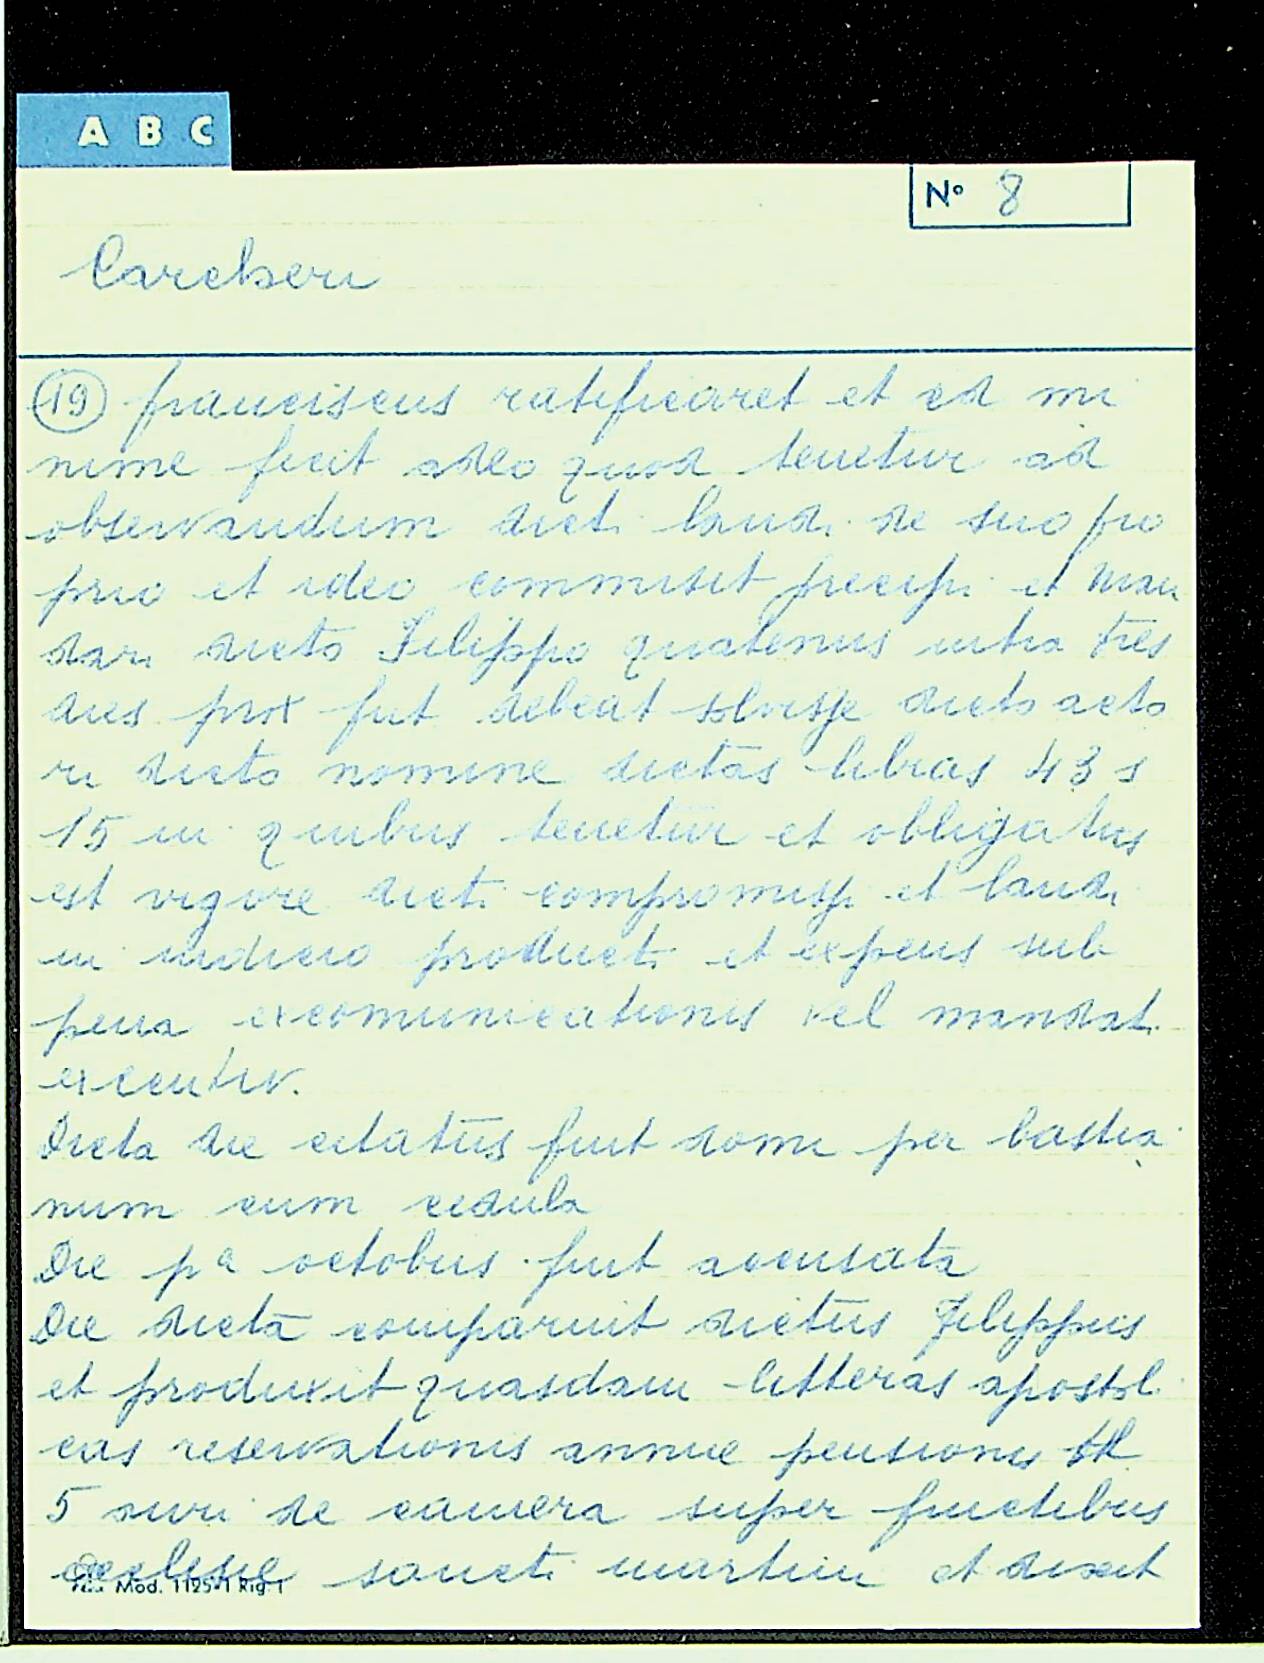 A B C
N° 8
Carelseri
(19) franciscus ratificaret et id mi
nime fecit adeo quod tenetur ad
observandum dicti laudi de suo pro
prio et ideo commisit precipi et man
dari dicto Filippo quatenus intra tres
dies prox fut debeat solvisse dicto acto
ri dicto nomine dictas libras 43 s
15 in quibus tenetur et obligatus
est vigore dicti compromissi et laudi
in iudicio producti et expens sub
pena excomunicationis vel mandati
executiv.
Dicta die citatus fuit domi per bastia
num cum cedula
Die pa octobris fuit accusata
Die dicta comparuit dictus Filippus
et produxit quasdam litteras apostoli
cas reservationis annue pensionis
5 auri de camera super fructibus
ecclesie sancti martini et dixit
Mod. 1125/1 Rig. 1